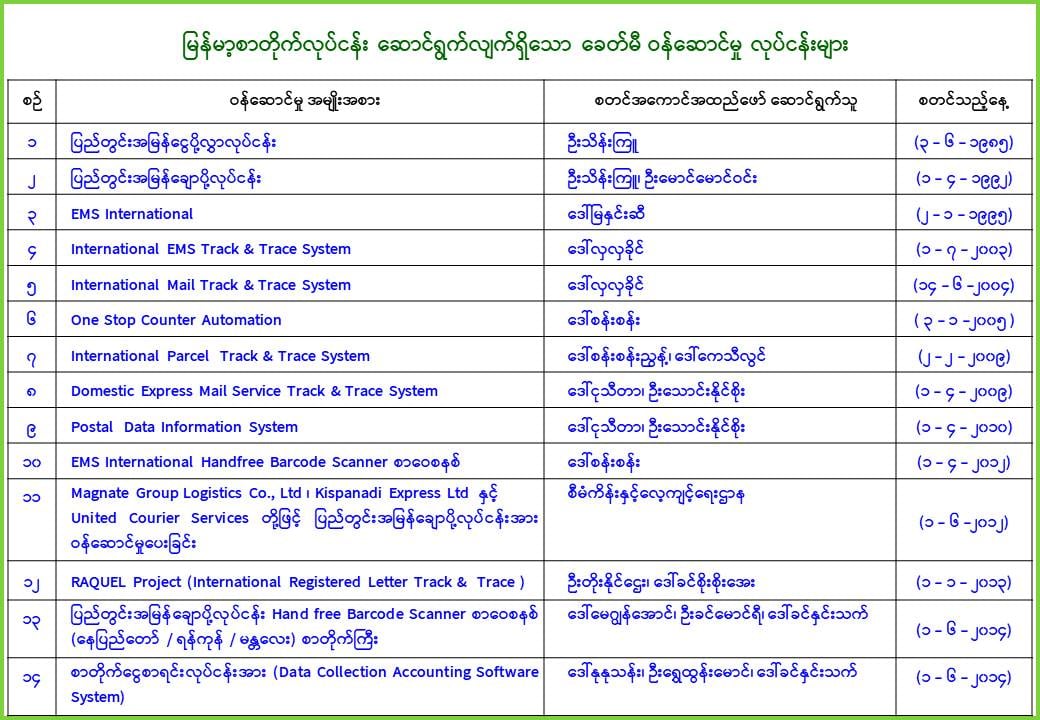 မြန်မာ့စာတိုက်လုပ်ငန်း ဆောင်ရွက်လျက်ရှိသော ခေတ်မီ ဝန်ဆောင်မှု လုပ်ငန်းများ
စဉ် ဝန်ဆောင်မှု အမျိုးအစား စတင်အကောင်အထည်ဖော် ဆောင်ရွက်သူ စတင်သည့်နေ့
၁ ပြည်တွင်းအမြန်ငွေပို့လွှာလုပ်ငန်း ဦးသိန်းကြူ (၃ – ၆ – ၁၉၈၅)
၂ ပြည်တွင်းအမြန်ချောပို့လုပ်ငန်း ဦးသိန်းကြူ၊ ဦးမောင်မောင်ဝင်း (၁ – ၄ – ၁၉၉၂)
၃ EMS International ဒေါ်မြနှင်းဆီ (၂ – ၁ – ၁၉၉၅)
၄ International EMS Track & Trace System ဒေါ်လှလှခိုင် (၁ – ၇ –၂၀၀၃)
၅ International Mail Track & Trace System ဒေါ်လှလှခိုင် (၁၄ – ၆ –၂၀၀၄)
၆ One Stop Counter Automation ဒေါ်စန်းစန်း ( ၃ – ၁ –၂၀၀၅ )
၇ International Parcel Track & Trace System ဒေါ်စန်းစန်းညွန့်၊ ဒေါ်ကေသီလွင် (၂ –၂ –၂၀၀၉)
၈ Domestic Express Mail Service Track & Trace System ဒေါ်ငုသီတာ၊ ဦးသောင်းနိုင်စိုး (၁ – ၄ –၂၀၀၉)
၉ Postal Data Information System ဒေါ်ငုသီတာ၊ ဦးသောင်းနိုင်စိုး (၁ – ၄ –၂၀၁၀)
၁၀ EMS International Handfree Barcode Scanner စာဝေစနစ် ဒေါ်စန်းစန်း (၁ – ၄ –၂၀၁၂)
၁၁ Magnate Group Logistics Co., Ltd ၊ Kispanadi Express Ltd နှင့် စီမံကိန်းနှင့်လေ့ကျင့်ရေးဌာန
United Courier Services တို့ဖြင့် ပြည်တွင်းအမြန်ချောပို့လုပ်ငန်းအား (၁ – ၆ –၂၀၁၂)
ဝန်ဆောင်မှုပေးခြင်း
၁၂ RAQUEL Project (International Registered Letter Track & Trace ) ဦးတိုးနိုင်ဌေး၊ ဒေါ်ခင်စိုးစိုးအေး (၁ – ၁ –၂၀၁၃)
၁၃ ပြည်တွင်းအမြန်ချောပို့လုပ်ငန်း Hand free Barcode Scanner စာဝေစနစ် ဒေါ်မေဂျွန်အောင်၊ ဦးခင်မောင်ရီ၊ ဒေါ်ခင်နှင်းသက် (၁ – ၆ –၂၀၁၄)
(နေပြည်တော် / ရန်ကုန် / မန္တလေး) စာတိုက်ကြီး
၁၄ စာတိုက်ငွေစာရင်းလုပ်ငန်းအား (Data Collection Accounting Software ဒေါ်နုနုသန်း၊ ဦးရွှေထွန်းမောင်၊ ဒေါ်ခင်နှင်းသက် (၁ – ၆ –၂၀၁၄)
System)